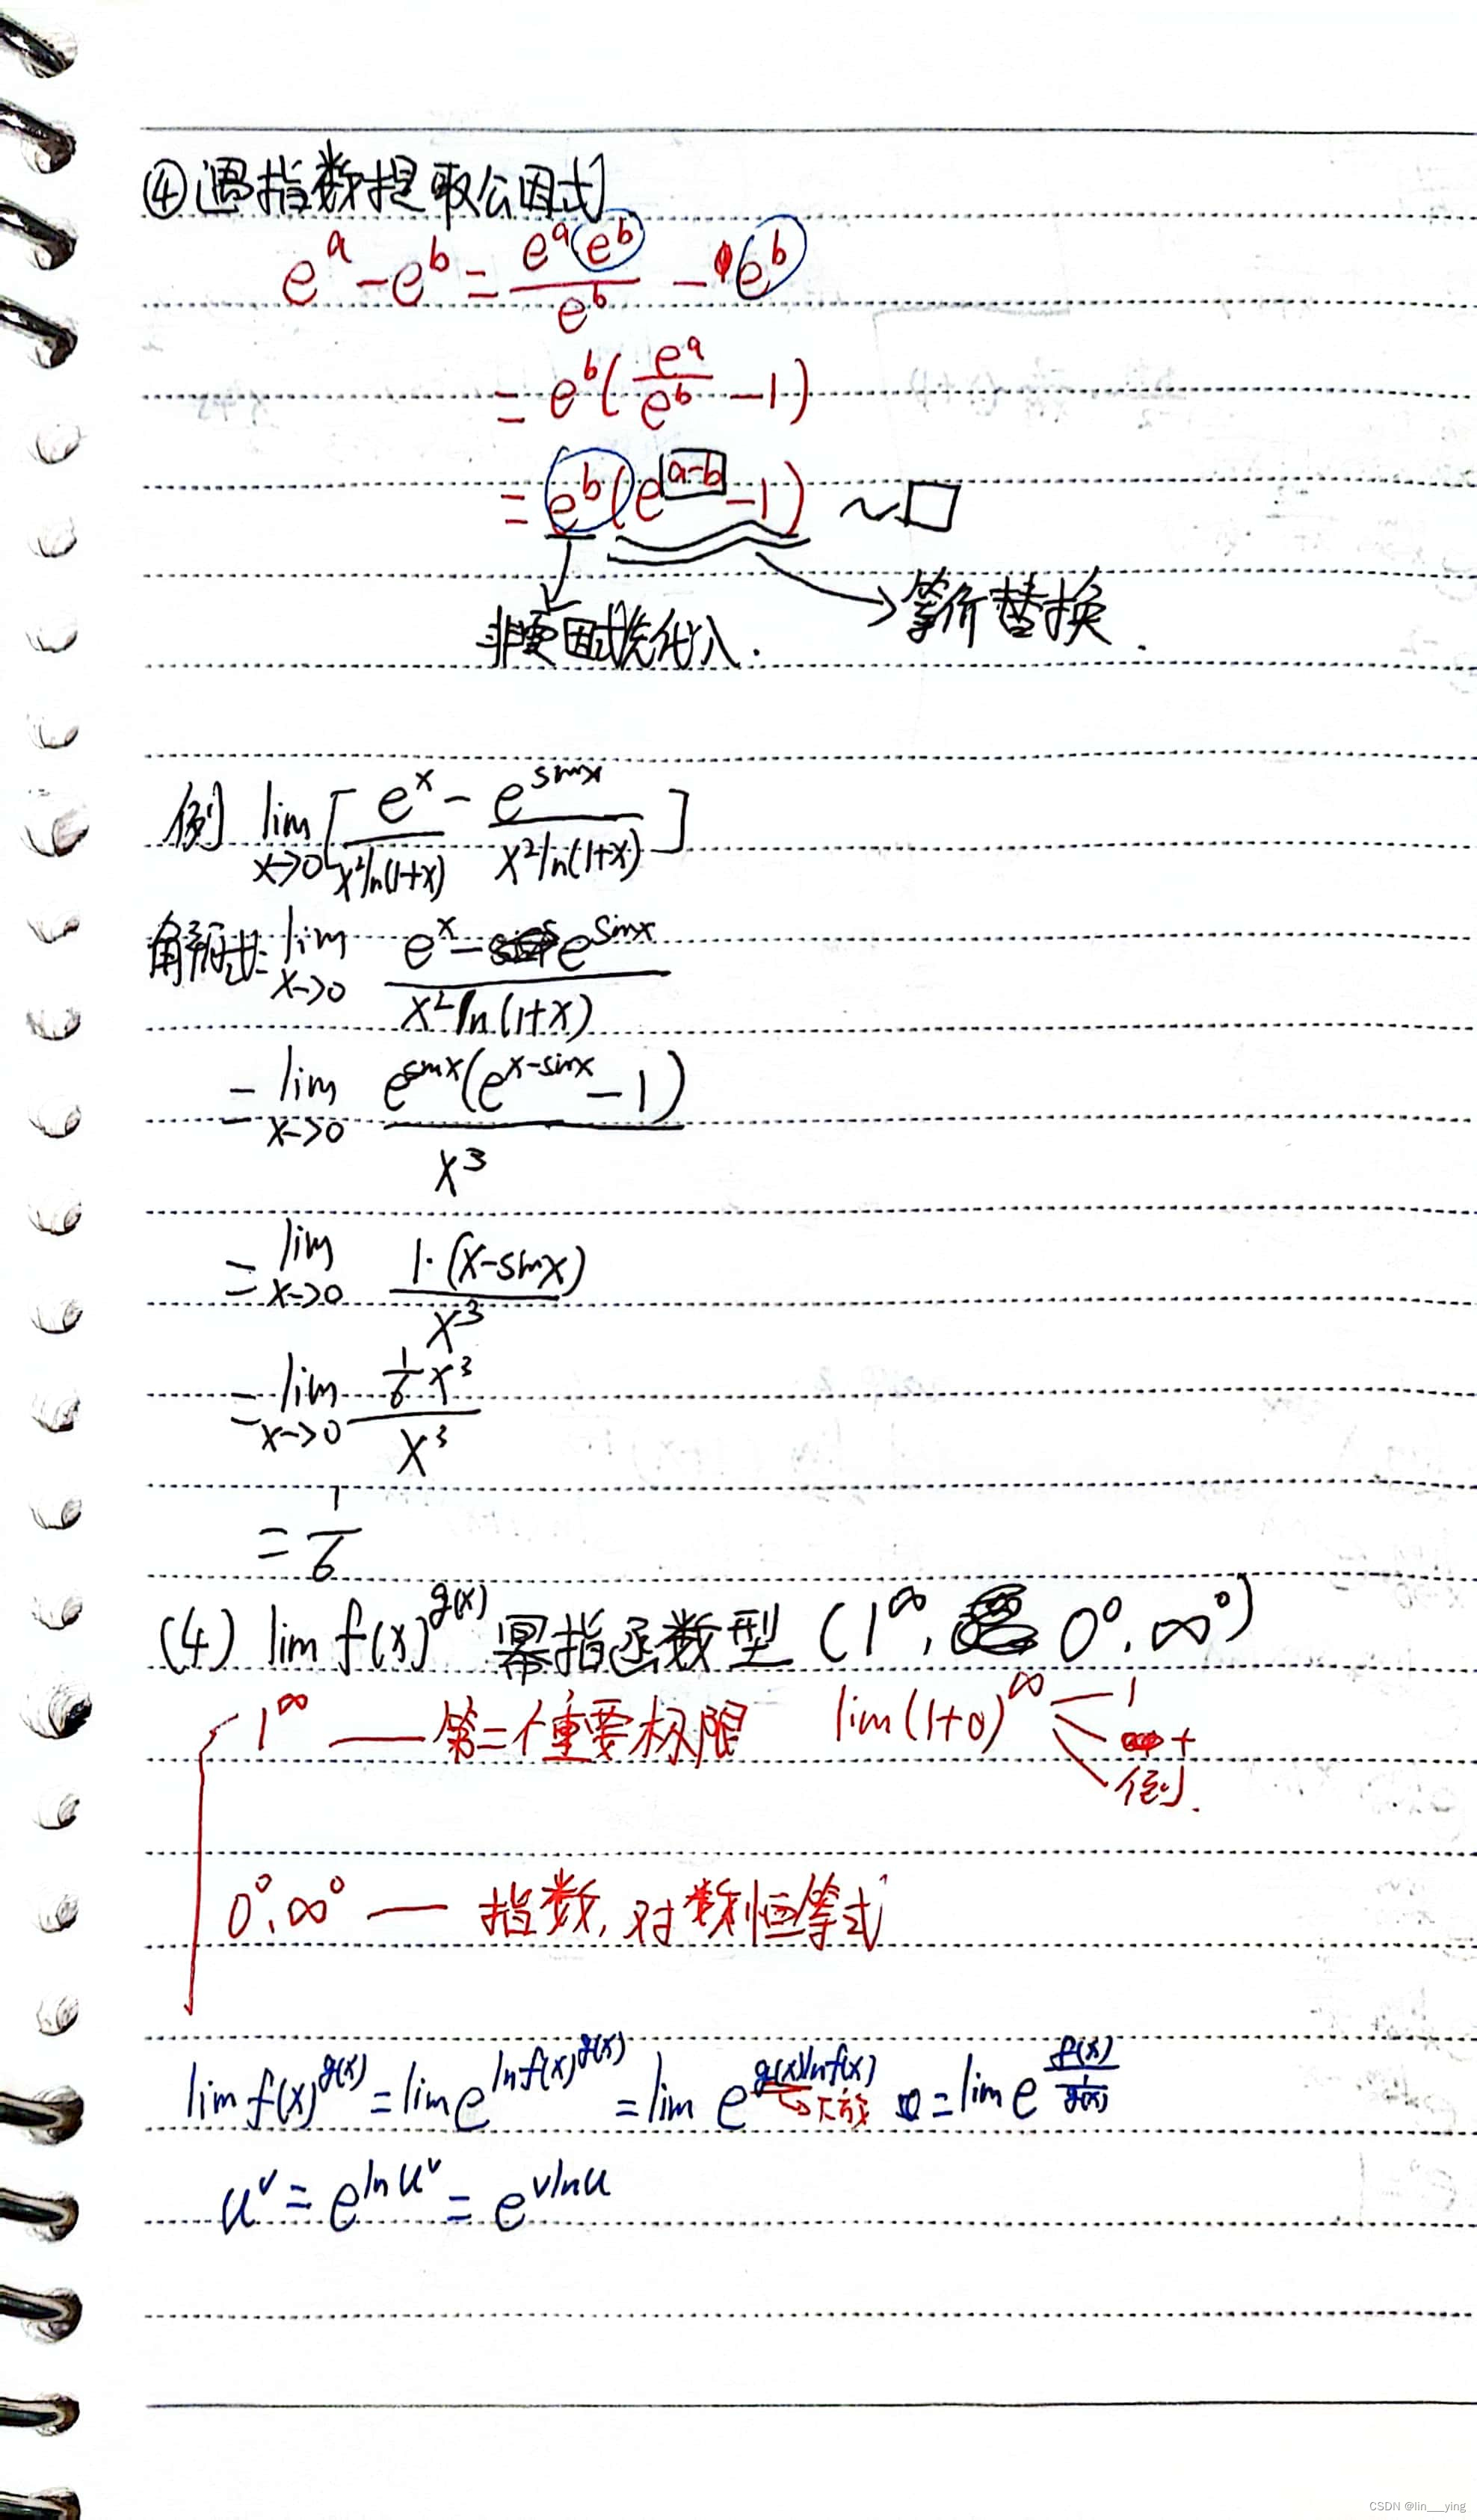 ④遇指数提取公因式
e^a - e^b = \frac{e^a e^b}{e^b} - e^b
= e^b(\frac{e^a}{e^b} - 1)
= e^b(e^{a-b} - 1) ~ □
→ 等价替换.
非零因式先代入.
例 \lim_{x->0}[\frac{e^x}{x^2 ln(1+x)} - \frac{e^{sinx}}{x^2 ln(1+x)}]
解:原式= \lim_{x->0} \frac{e^x - e^{sinx}}{x^2 ln(1+x)}
= \lim_{x->0} \frac{e^{sinx}(e^{x-sinx} - 1)}{x^3}
= \lim_{x->0} \frac{1·(x-sinx)}{x^3}
= \lim_{x->0} \frac{\frac{1}{6}x^3}{x^3}
= \frac{1}{6}
(4) lim f(x)^{g(x)} 幂指函数型 (1^∞, 0^0, ∞^0)
1^∞ —— 第二个重要极限 lim(1+0)^∞ 1
+
倒.
0^0, ∞^0 — 指数,对数恒等式
lim f(x)^{g(x)} = lim e^{ln f(x)^{g(x)}} = lim e^{g(x)ln f(x)} = lim e^{\frac{f(x)}{\frac{1}{g(x)}}}
→下放
u^v = e^{ln u^v} = e^{vlnu}
CSDN @lin___ying